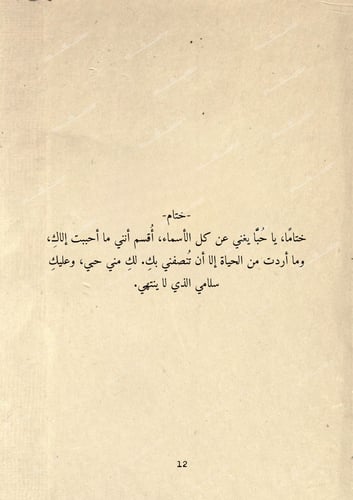 -ختام-
ختامًا، يا حُبًّا يغني عن كل الأسماء، أُقسم أنني ما أحببت إلاكِ،
وما أردت من الحياة إلا أن تُنصفني بكِ. لكِ مني حبي، وعليكِ
سلامي الذي لا ينتهي.
12